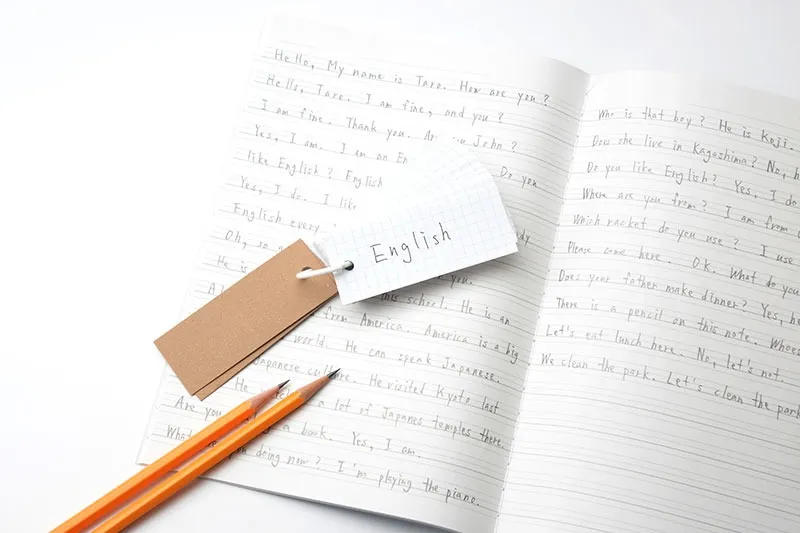 Hello, My name is Taro. How are you?
Hello, Taro. I am fine, and you?
I am fine. Thank you. Are you John?
Yes, I am. I am an En Do you
like English? English
Yes, I do. I like
English every
Oh, so
He is you.
this school. He is an
from America. America is a big
world. He can speak Japanese.
Japanese culture. He visited Kyoto last
He a lot of Japanes temples there.
Are a book. Yes, I am.
What doing now? I'm playing the piano.
English
Who is that boy? He is Koji.
Does she live in Kagoshima? No,
Do you like English? Yes, I do
Where are you from? I am from
Which racket do you use? I use
Please come here. OK. What do you
Does your father make dinner? Yes,
There is a pencil on this note. Whose
Let's eat lunch here. No, let's not.
We clean the park. Let's clean the park